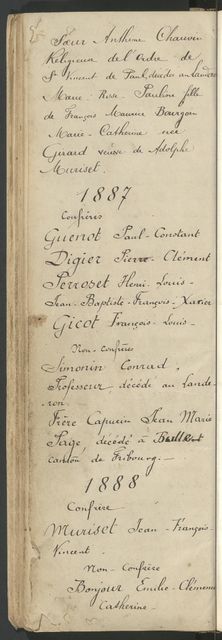 Sœur Anthime Chauvin
Religieuse de l'Ordre de
St Vincent de Paul, décédée au Landeron
Marie-Rose-Pauline fille
de François Maurice Bourgoin
Marie-Catherine née
Girard veuve de Adolphe
Muriset.
1887
Confrères
Guenot Paul-Constant
Digier Pierre-Clément
Perroset Henri-Louis-
Jean-Baptiste-François-Xavier
Gicot François-Louis-
Non-confrères
Simonin Conrad,
Professeur décédé au Lande-
ron.
Frère Capucin Jean Marie
Page décédé à
canton de Fribourg.-
1888
Confrère
Muriset Jean-François-
Vincent.
Non-Confrère
Bonjour Emilie-Clémence
Catherine-